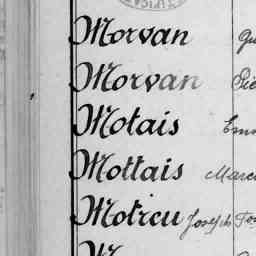 Morvan
Morvan
Motais
Mottais Marc
Motreu Joseph